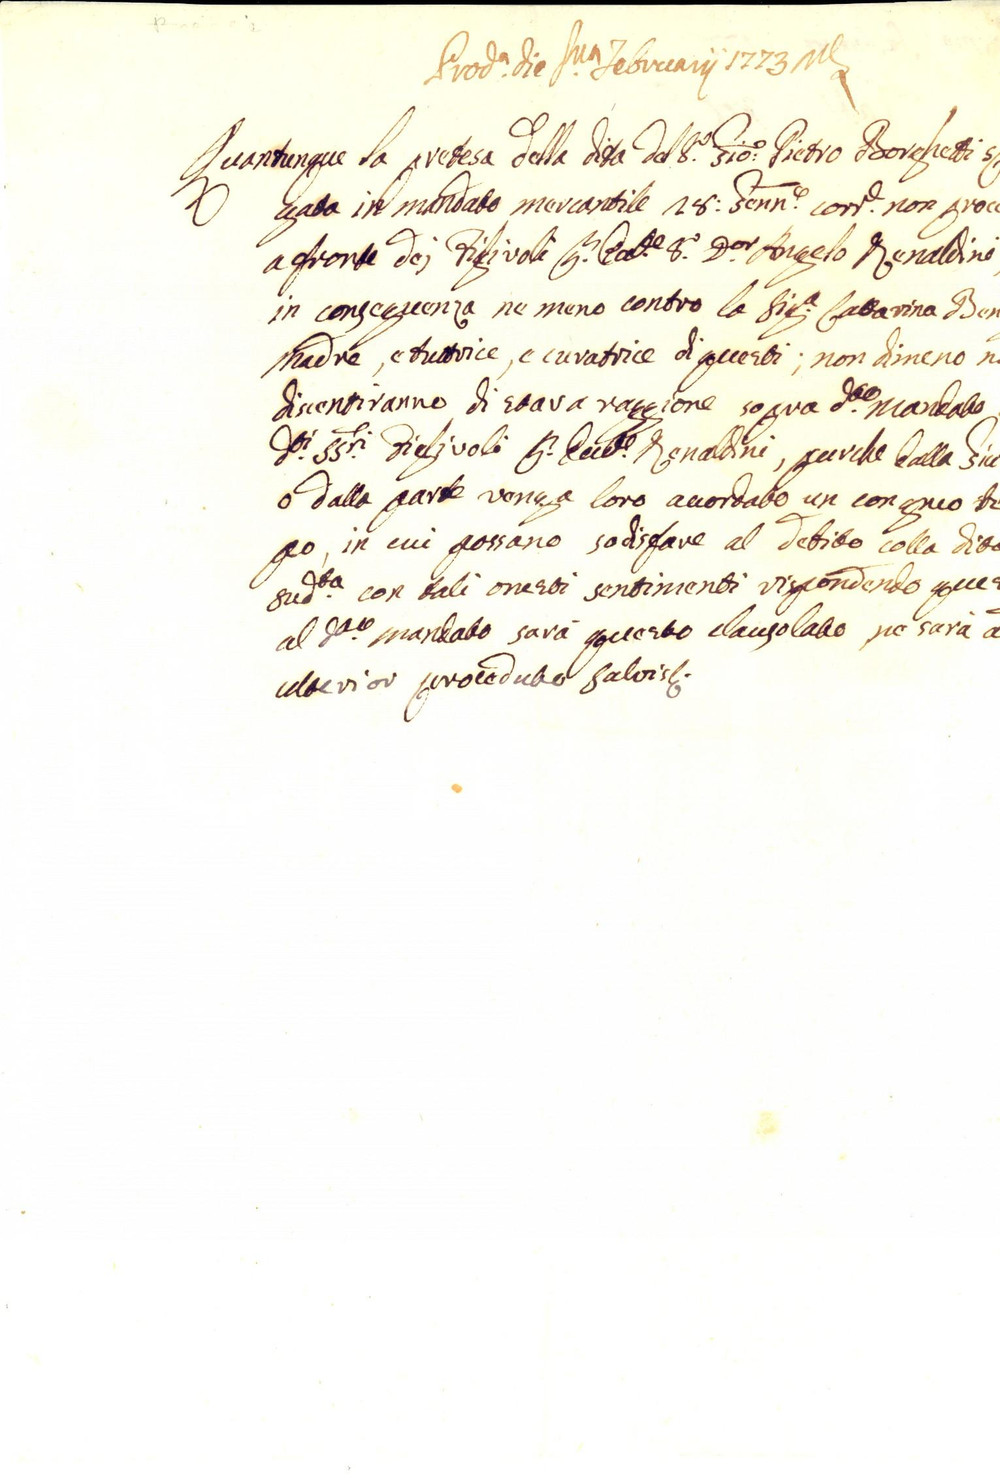 Prod.a die Februarij 1773
Quantunque la pretesa della dita del S.r Gio: Pietro Borghetti
gata in mandato mercantile 28: Genn.o corr.e non proce
a fronte dei Figlivoli q. Ecc.te S.r D.or Angelo Renaldini
in conseguenza ne meno contro la Sig.a Cattarina Ben
Madre, e tuttrice, e curatrice di questi; non dimeno n
disentiranno di stara raggione sopra d.to mandato
d.i SS.ri Figlivoli q. Ecc.te Renaldini, purche dalla Giu
o dalla parte venga loro accordato un congruo te
po, in cui possano sodisfare al debito colla dita
sud.ta con tali onesti sentimenti rispondendo ques
al d.to mandato sarà questo clausolato, ne sarà a
ulterior proceduto salvis q.